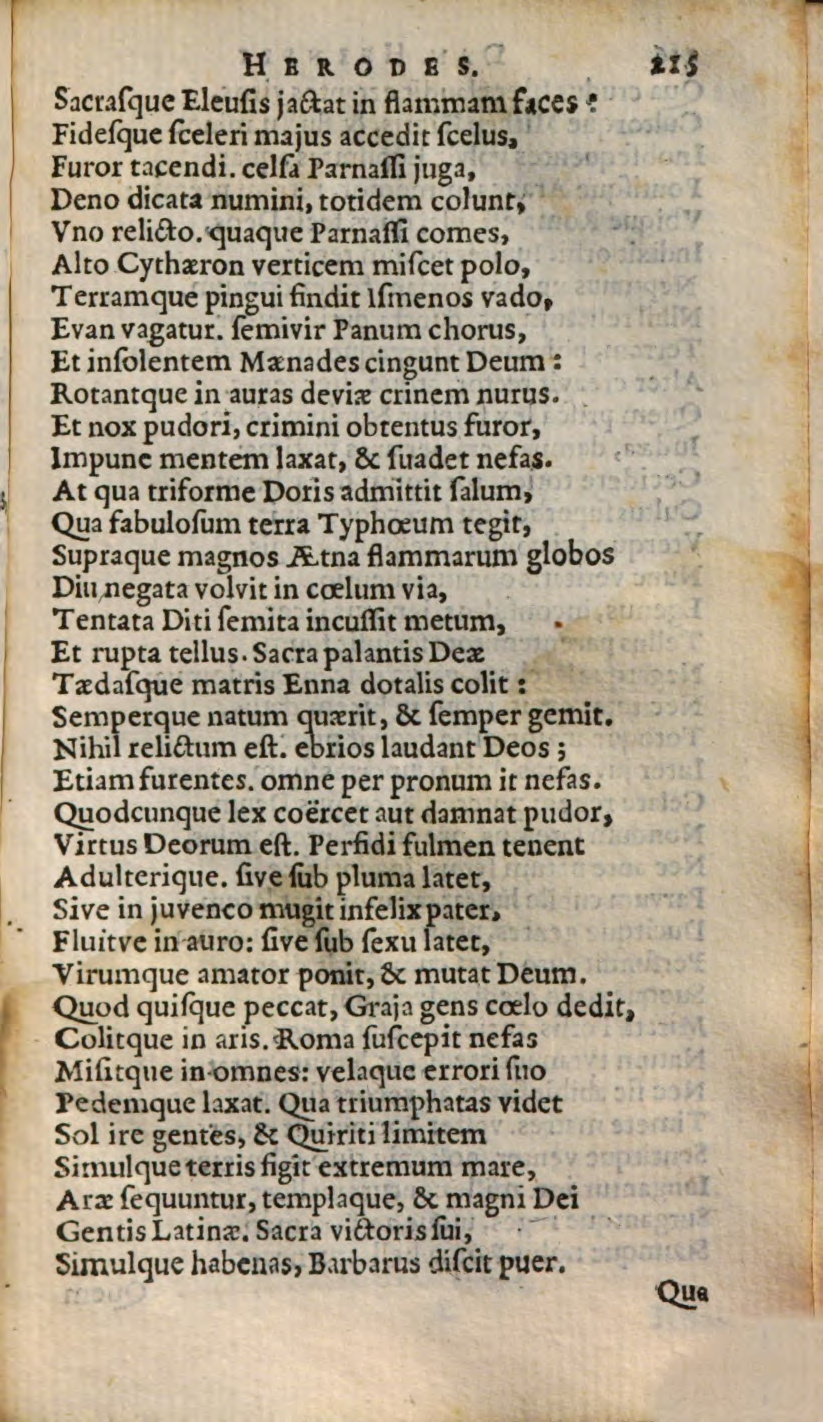 HERODES. 215
Sacraſque Eleuſis jactat in flammam faces ?
Fideſque ſceleri majus accedit ſcelus,
Furor tacendi. celſa Parnaſſi juga,
Deno dicata numini, totidem colunt,
Vno relicto. quaque Parnaſſi comes,
Alto Cythæron verticem miſcet polo,
Terramque pingui findit Iſmenos vado,
Evan vagatur. ſemivir Panum chorus,
Et inſolentem Mænades cingunt Deum :
Rotantque in auras deviæ crinem nurus.
Et nox pudori, crimini obtentus furor,
Impune mentem laxat, & ſuadet nefas.
At qua triforme Doris admittit ſalum,
Qua fabuloſum terra Typhœum tegit,
Supraque magnos Ætna flammarum globos
Diu negata volvit in cœlum via,
Tentata Diti ſemita incuſſit metum,
Et rupta tellus. Sacra palantis Deæ
Tædaſque matris Enna dotalis colit :
Semperque natum quærit, & ſemper gemit.
Nihil relictum eſt. ebrios laudant Deos ;
Etiam furentes. omne per pronum it nefas.
Quodcunque lex coërcet aut damnat pudor,
Virtus Deorum eſt. Perfidi fulmen tenent
Adulterique. ſive ſub pluma latet,
Sive in juvenco mugit infelix pater,
Fluitve in auro: ſive ſub ſexu latet,
Virumque amator ponit, & mutat Deum.
Quod quiſque peccat, Graja gens cœlo dedit,
Colitque in aris. Roma ſuſcepit nefas
Miſitque in omnes: velaque errori ſuo
Pedemque laxat. Qua triumphatas videt
Sol ire gentes, & Quiriti limitem
Simulque terris figit extremum mare,
Aræ ſequuntur, templaque, & magni Dei
Gentis Latinæ. Sacra victoris ſui,
Simulque habenas, Barbarus diſcit puer.
Qua